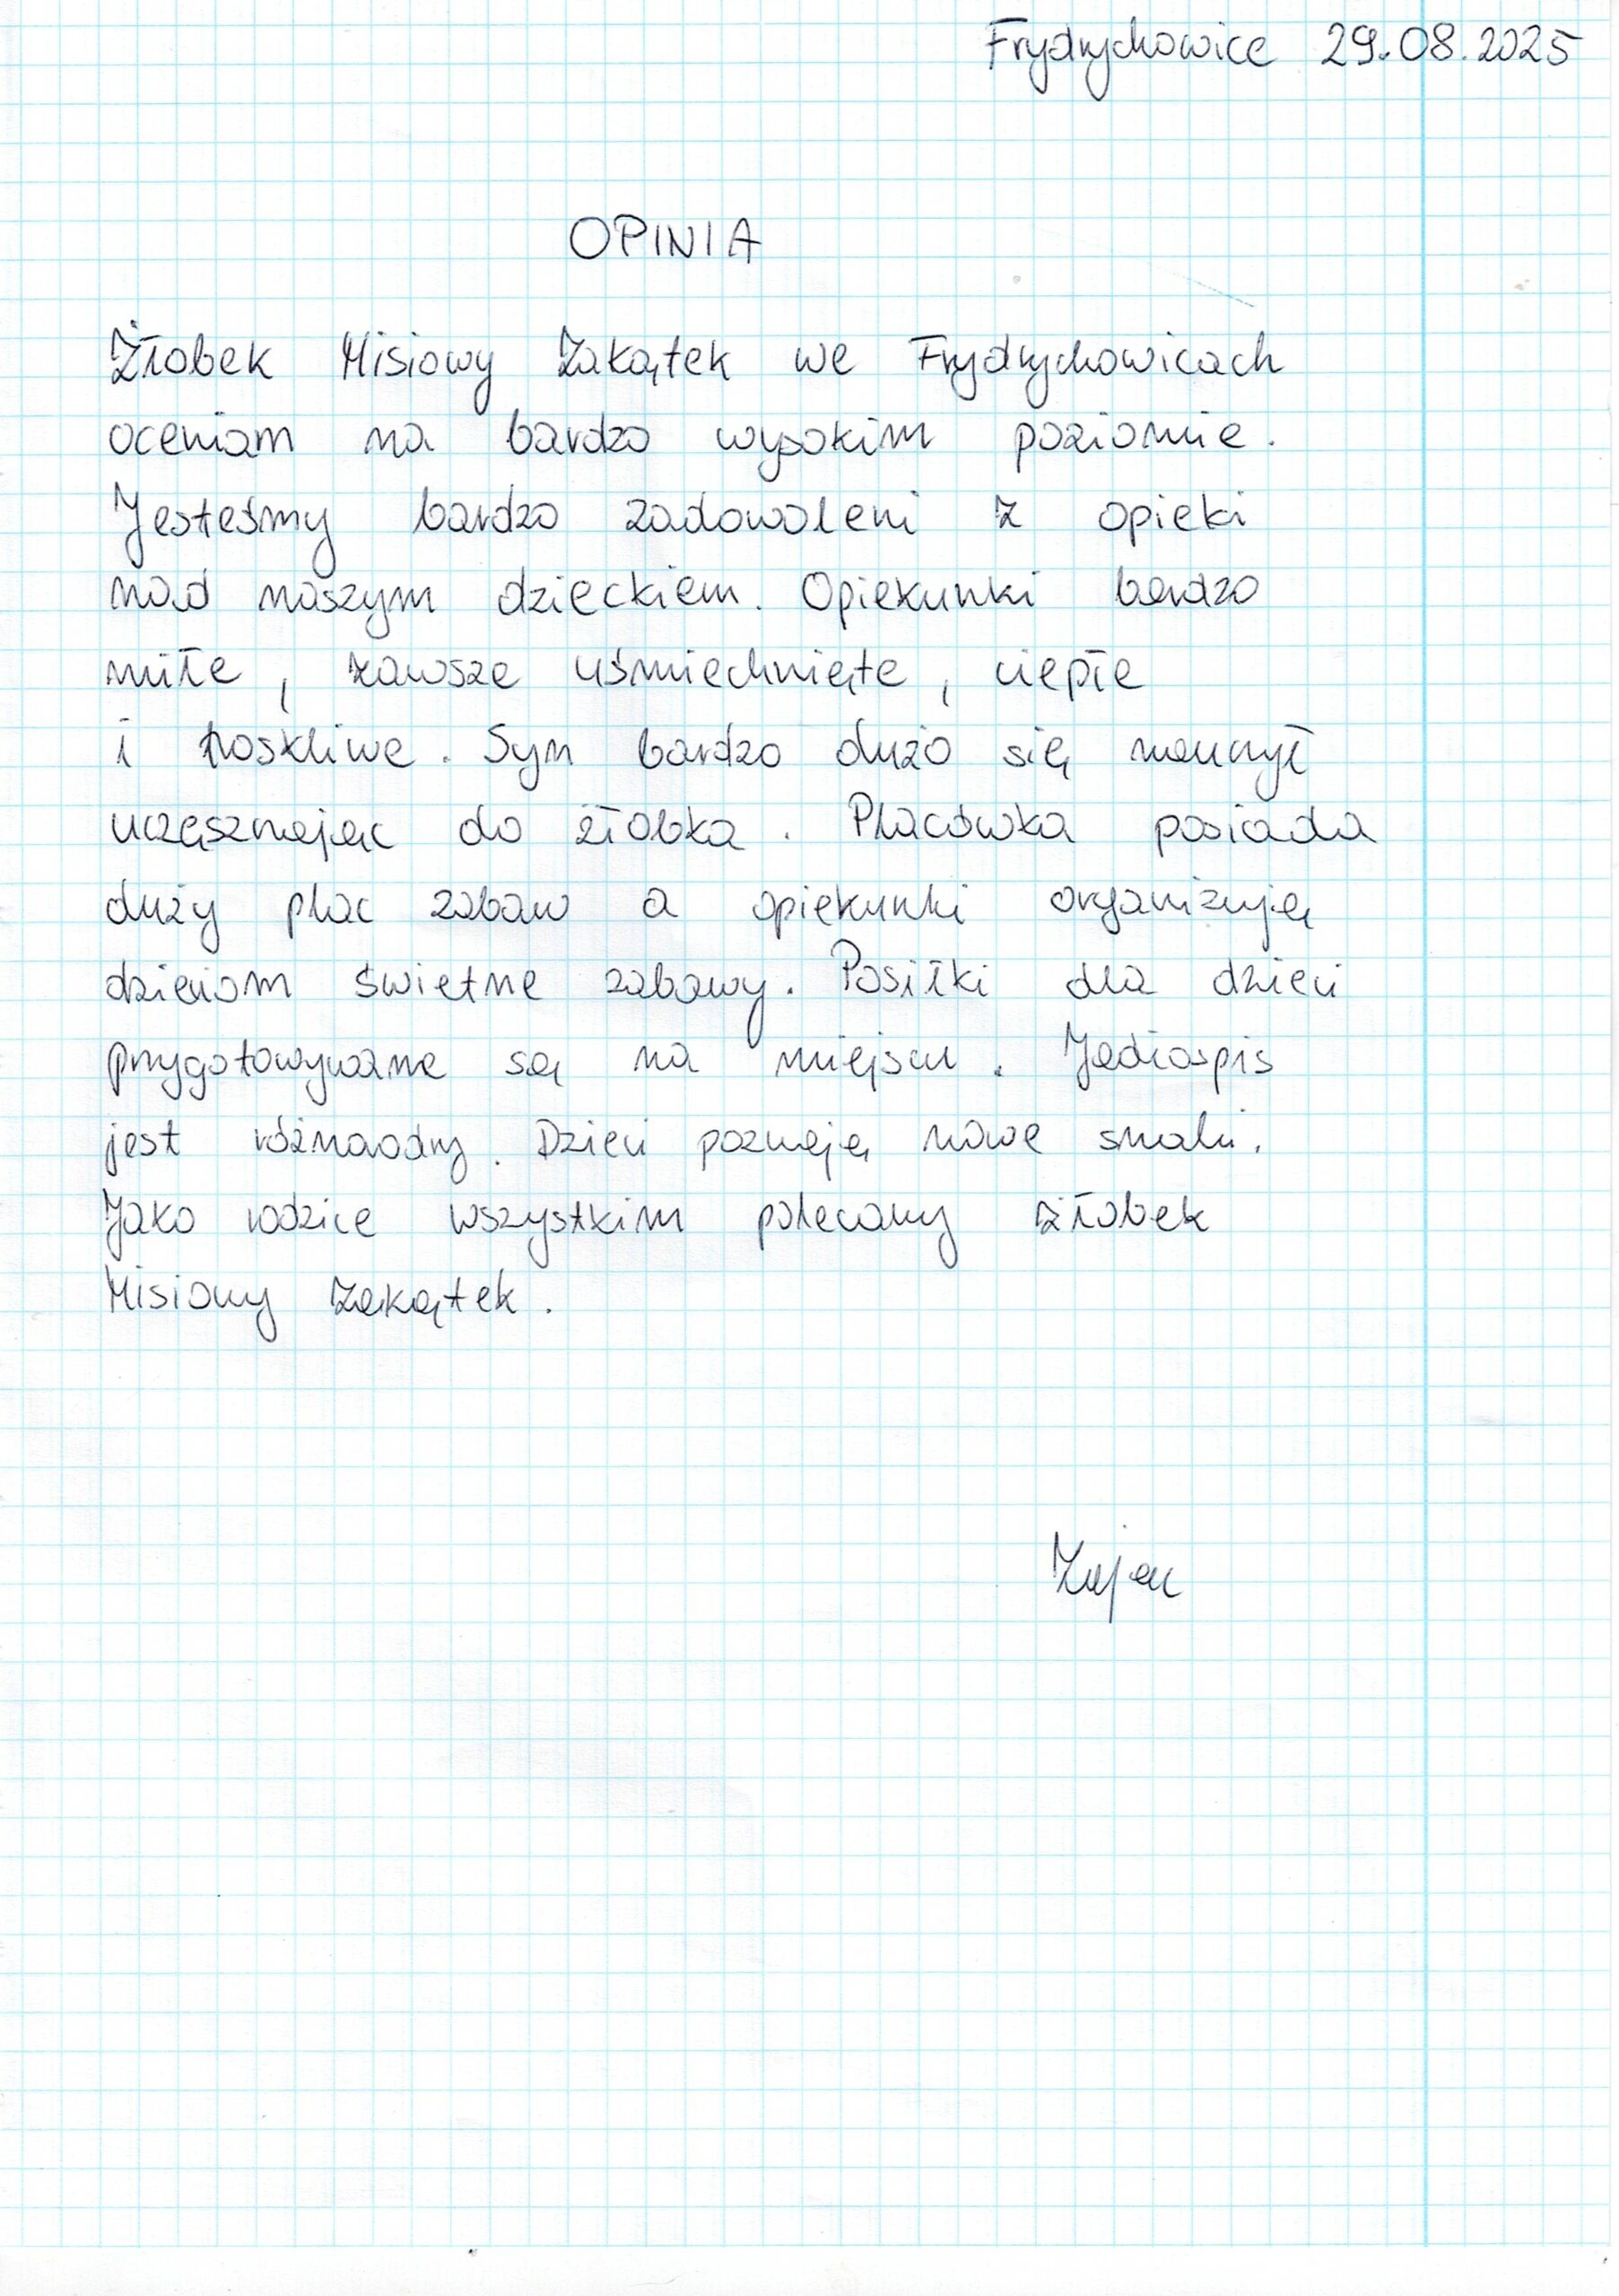 Frydrychowice 29.08.2025
OPINIA
Żłobek Misiowy Zakątek we Frydrychowicach
oceniam na bardzo wysokim poziomie.
Jesteśmy bardzo zadowoleni z opieki
nad naszym dzieckiem. Opiekunki bardzo
miłe, zawsze uśmiechnięte, ciepłe
i troskliwe. Syn bardzo dużo się nauczył
uczęsznając do żłobka. Placówka posiada
duży plac zabaw a opiekunki organizują
dzieciom świetne zabawy. Posiłki dla dzieci
przygotowywane są na miejscu. Jadłospis
jest różnorodny. Dzieci poznają nowe smaki.
Jako rodzice wszystkim polecamy żłobek
Misiowy Zakątek.
Zając